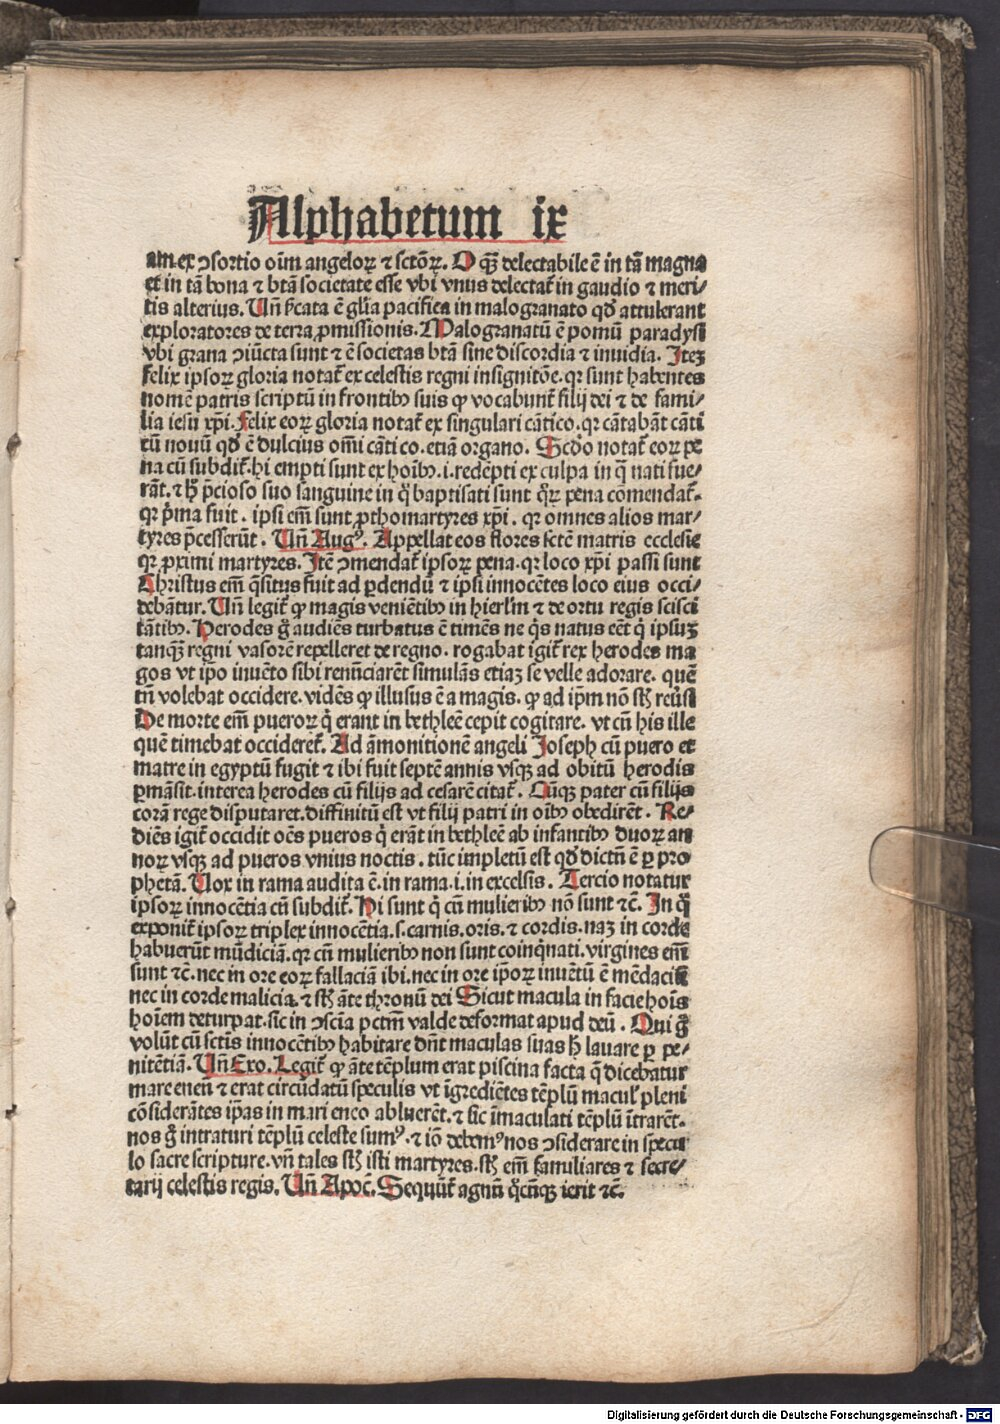 Alphabetum ix
am.ex ↄsortio oīm angeloꝝ ⁊ sctōꝝ. O qꝫ delectabile ē in tā magna
et in tā bona ⁊ btā societate esse vbi vnus delectat̄ in gaudio ⁊ meri⸗
tis alterius. Vn̄ p̄cata ē gl̄ia pacifica in malogranato qd̄ attulerant
exploratores de terra ꝓmissionis. Malogranatū ē pomū paradysi
vbi grana ↄiūcta sunt ⁊ ē societas btā sine discordia ⁊ inuidia. Iteꝫ
felix ipsoꝝ gloria notat̄ ex celestis regni insignitōe. qꝛ sunt habentes
nomē patris scriptū in frontibꝰ suis ꝙ vocabunt̄ filij dei ⁊ de fami⸗
lia iesu xp̄i. Felix eoꝝ gloria notat̄ ex singulari cātico. qꝛ cātabāt cāti
cū nouū qd̄ ē dulcius om̄i cāti co. etiā organo. Scd̄o notat̄ eoꝝ pe
na cū subdit̄. hi empti sunt ex hoīb⁹. i. redēpti ex culpa in q̄ nati fue⸗
rāt. ⁊ h̄ p̄cioso suo sanguine in q̄ baptisati sunt q̄ꝝ pena cōmendat̄.
qꝛ p̄ma fuit. ipsi em̄ sunt ꝓthomartyres xp̄i. qꝛ omnes alios mar⸗
tyres p̄cesserūt. Vn̄ Aug⁹. Appellat eos flores sctē matris ecclesie
qꝛ ꝓximi martyres. Itē ↄmendat̄ ipsoꝝ pena. qꝛ loco xp̄i passi sunt
Christus em̄ q̄situs fuit ad ꝑdendū ⁊ ipsi innocētes loco eius occi⸗
debātur. Vn̄ legit̄ ꝙ magis veniētib⁹ in hierl̄m ⁊ de ortu regis scisci
tātib⁹. Herodes g̊ audiēs turbatus ē timēs ne q̄s natus eēt q̄ ipsuꝫ
tanqꝫ regni vasorē repelleret de regno. rogabat igit̄ rex herodes ma
gos vt ip̄o inuēto sibi renūciarēt simulās etiaꝫ se velle adorare. quē
tn̄ volebat occidere. vidēs ꝙ illusus ē a magis. ꝙ ad ip̄m nō st̄ reu̇si
De morte em̄ pueroꝝ q̄ erant in bethleē cepit cogitare. vt cū his ille
quē timebat occideret̄. Ad āmonitionē angeli Joseph cū puero et
matre in egyptū fugit ⁊ ibi fuit septē annis vsqꝫ ad obitū herodis
ꝑmāsit. interea herodes cū filijs ad cesarē citat̄. Cūqꝫ pater cū filijs
corā rege disputaret. diffinitū est vt filij patri in oīb⁹ obedirēt. Re⸗
diēs igit̄ occidit oēs pueros q̄ erāt in bethleē ab infantib⁹ duoꝝ an
noꝝ vsqꝫ ad pueros vnius noctis. tūc impletū est qd̄ dictū ē ꝑ pro
phetā. Vox in rama audita ē. in rama. i. in excelsis. Tercio notatur
ipsoꝝ innocētia cū subdit̄. Hi sunt q̄ cū mulierib⁹ nō sunt ⁊c̄. In q̄
exponit̄ ipsoꝝ triplex innocētia. s. carnis. oris. ⁊ cordis. naꝫ in corde
habuerūt mūdiciā. qꝛ cū mulierib⁹ non sunt coinq̄nati. virgines em̄
sunt ⁊c̄. nec in ore eoꝝ fallaciā ibi. nec in ore ip̄oꝝ inuētū ē mēdaciū
nec in corde malicia. ⁊ st̄ āte thronū dei Sicut macula in facie hoīs
hoīem deturpat. sic in ↄscīa pctm̄ valde deformat apud deū. Qui g̊
volūt cū sctīs innocētib⁹ habitare dn̄t maculas suas h̄ lauare ꝑ pe⸗
nitētiā. Vn̄ Exo. Legit̄ ꝙ āte tēplum erat piscina facta q̄ dicebatur
mare eneū ⁊ erat circūdatū speculis vt īgrediētes tēplū maculꝭ pleni
cōsiderātes ip̄as in mari eneo abluerēt. ⁊ sic īmaculati tēplū ītrarēt.
nos g̊ intraturi tēplū celeste sum⁹. ⁊ iō debem⁹ nos ↄsiderare in specu
lo sacre scripture. vn̄ tales st̄ isti martyres. st̄ em̄ familiares ⁊ secre⸗
tarij celestis regis. Vn̄ Apoc̄. Sequūt̄ agnū q̊cūqꝫ ierit ⁊c̄.
Digitalisierung gefördert durch die Deutsche Forschungsgemeinschaft - DFG